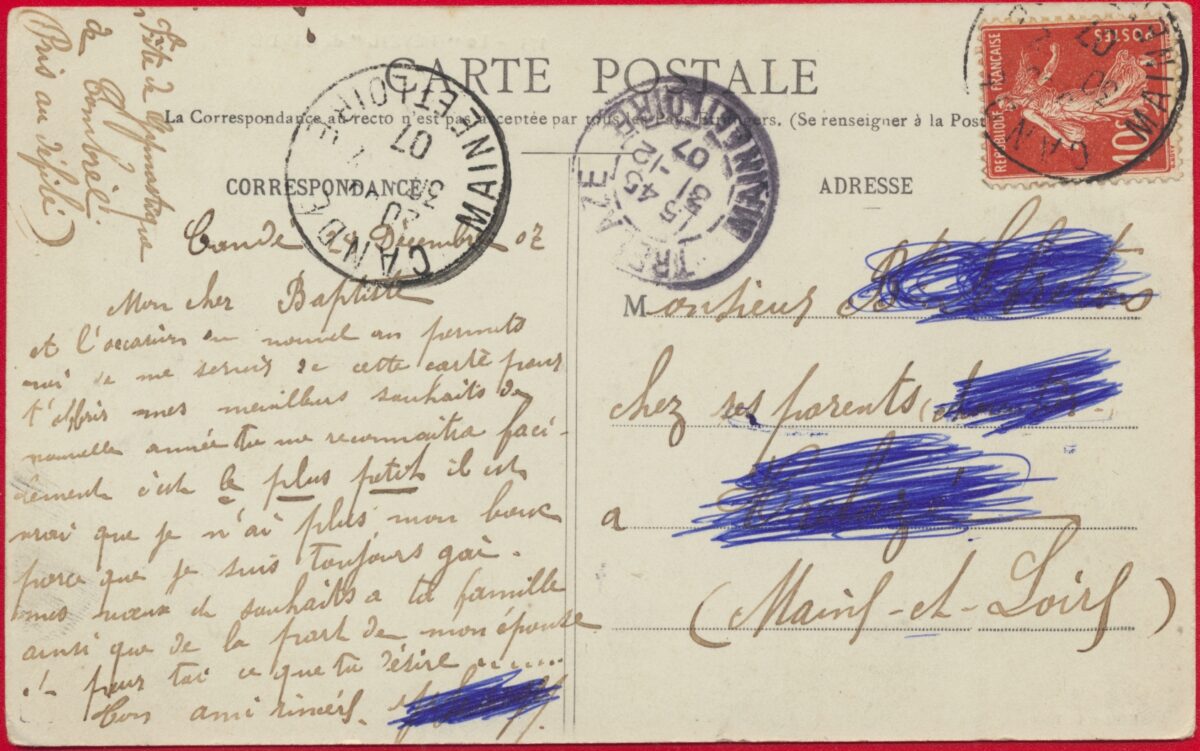 Fête de Gymnastique
de Combrée.
(Pris au défilé)
CARTE POSTALE
La Correspondance au recto n'est pas acceptée par tous les Pays Étrangers. (Se renseigner à la Post
CORRESPONDANCE
ADRESSE
CANDÉ
MAINE ET LOIRE
20
30
07
TRELAZE
MAINE ET LOIRE
5 45
31 -12
07
RÉPUBLIQUE FRANÇAISE
POSTES
10c
CANDÉ
MAINE
07
Candé 29 Décembre 07
Mon cher Baptiste
et l'occasion du nouvel an permets
moi de me servir de cette carte pour
t'offrir mes meilleurs souhaits de
nouvelle année tu me reconnaitra faci-
lement c'est le plus petit il est
vrai que je n'ai plus mon bouc
parce que je suis toujours gai.
mes vœux et souhaits a ta famille
ainsi que de la part de mon épouse
pour toi ce que tu désire ........
Ton ami sincère.
Monsieur
chez ses parents
a
(Maine-et-Loire)